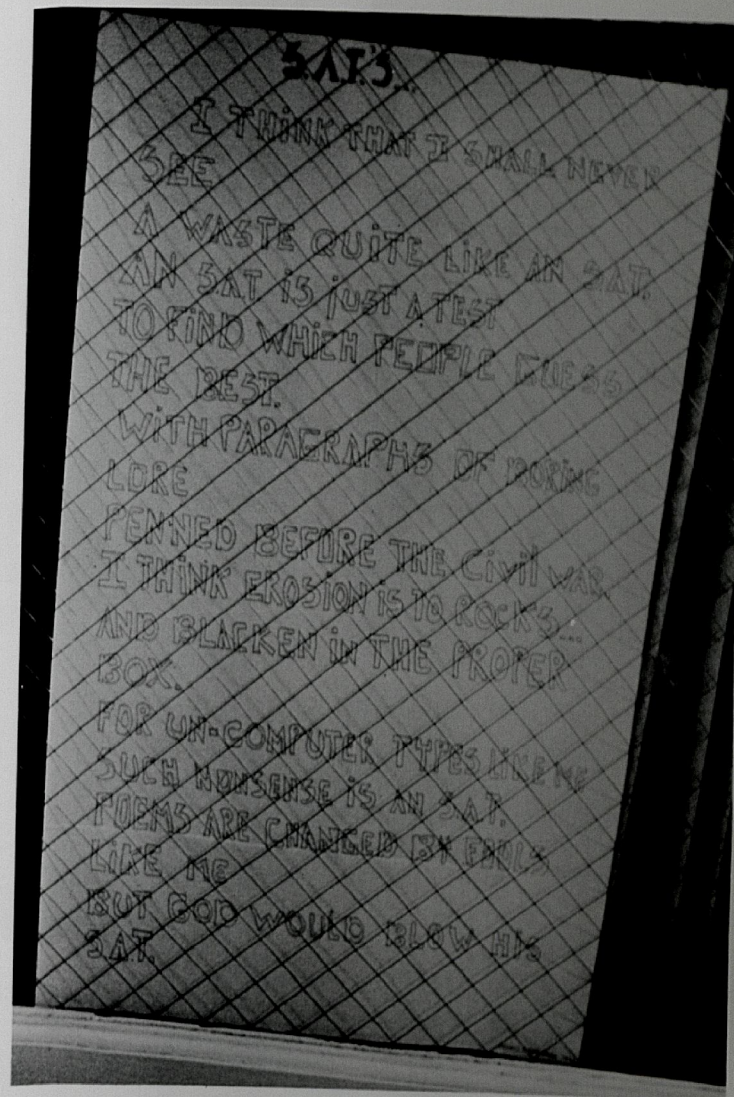 S.A.T.'S...
I THiNK THAT I SHALL NEVER
SEE
A WASTE QUiTE LiKE AN S.A.T.
AN S.A.T. iS jUST A TEST
TO FiND WHiCH PEOPLE GUESS
THE BEST.
WiTH PARAGRAPHS OF BORiNG
LORE
PENNED BEFORE THE Civil WAR.
I THiNK EROSION iS TO ROCKS...
AND BLACKEN iN THE PROPER
BOX.
FOR UN-COMPUTER TYPES LiKE ME
SUCH NONSENSE iS AN S.A.T.
POEMS ARE CHANGED BY FOOLS
LIKE ME
BUT GOD WOULD BLOW HiS
S.A.T.